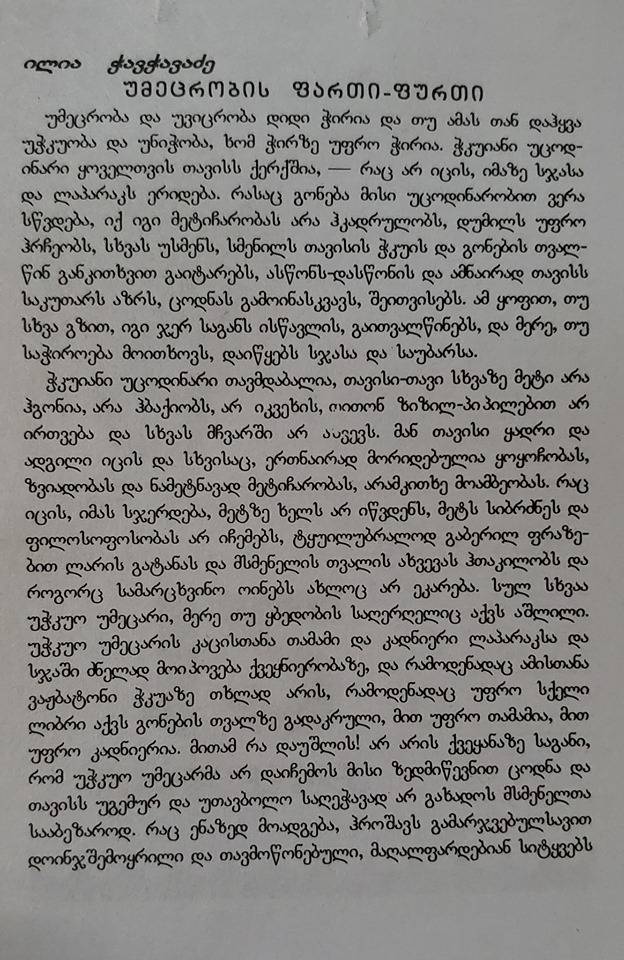 ილია ჭავჭავაძე
უმეცრობის ფართი-ფურთი
უმეცრობა და უვიცრობა დიდი ჭირია და თუ ამას თან დაჰყვა
უჭკუობა და უნიჭობა, ხომ ჭირზე უფრო ჭირია. ჭკუიანი უცოდ-
ინარი ყოველთვის თავისს ქერქშია, — რაც არ იცის, იმაზე სჯასა
და ლაპარაკს ერიდება. რასაც გონება მისი უცოდინარობით ვერა
სწვდება, იქ იგი მეტიჩარობას არა ჰკადრულობს, დუმილს უფრო
ჰრჩეობს, სხვას უსმენს, სმენილს თავისის ჭკუის და გონების თვალ-
წინ განკითხვით გაიტარებს, ასწონს-დასწონის და ამნაირად თავისს
საკუთარს აზრს, ცოდნას გამოინასკვავს, შეითვისებს. ამ ყოფით, თუ
სხვა გზით, იგი ჯერ საგანს ისწავლის, გაითვალწინებს, და მერე, თუ
საჭიროება მოითხოვს, დაიწყებს სჯასა და საუბარსა.
ჭკუიანი უცოდინარი თავმდაბალია, თავისი-თავი სხვაზე მეტი არა
ჰგონია, არა ჰბაქიობს, არ იკვეხის, თითონ ზიზილ-პიპილებით არ
ირთვება და სხვას მჩვარში არ ახვევს. მან თავისი ყადრი და
ადგილი იცის და სხვისაც, ერთნაირად მორიდებულია ყოყოჩობას,
ზვიადობას და ნამეტნავად მეტიჩარობას, არამკითხე მოამბეობას. რაც
იცის, იმას სჯერდება, მეტზე ხელს არ იწვდენს, მეტს სიბრძნეს და
ფილოსოფოსობას არ იჩემებს, ტყუილუბრალოდ გაბერილ ფრაზე-
ბით ლარის გატანას და მსმენელის თვალის ახვევას ჰთაკილობს და
როგორც სამარცხვინო ოინებს ახლოც არ ეკარება. სულ სხვაა
უჭკუო უმეცარი, მერე თუ ყბედობის საღერღელიც აქვს აშლილი.
უჭკუო უმეცარის კაცისთანა თამამი და კადნიერი ლაპარაკსა და
სჯაში ძნელად მოიპოვება ქვეყნიერობაზე, და რამოდენადაც ამისთანა
ვაჟბატონი ჭკუაზე თხლად არის, რამოდენადაც უფრო სქელი
ლიბრი აქვს გონების თვალზე გადაკრული, მით უფრო თამამია, მით
უფრო კადნიერია. მითამ რა დაუშლის! არ არის ქვეყანაზე საგანი,
რომ უჭკუო უმეცარმა არ დაიჩემოს მისი ზედმიწევნით ცოდნა და
თავისს უგემურ და უთავბოლო საღეჭავად არ გახადოს მსმენელთა
სააბეზაროდ. რაც ენაზედ მოადგება, ჰროშავს გამარჯვებულსავით
დოინჯშემოყრილი და თავმოწონებული, მაღალფარდებიან სიტყვებს